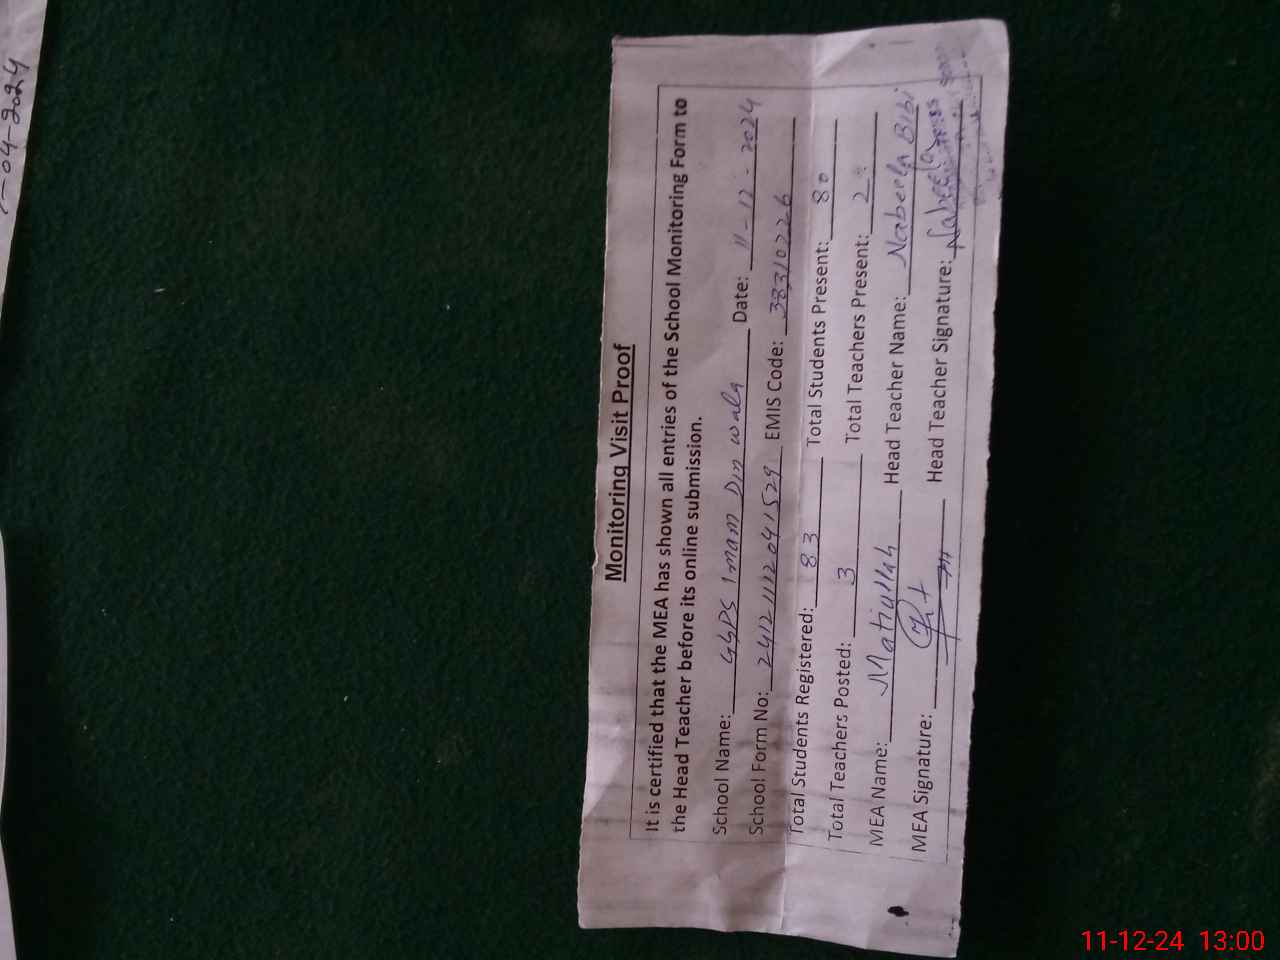 Monitoring Visit Proof
It is certified that the MEA has shown all entries of the School Monitoring Form to
the Head Teacher before its online submission.
School Name: GGPS Imam Din wala Date: 11-12-2024
School Form No: 24121112041529 EMIS Code: 38310226
Total Students Registered: 83 Total Students Present: 80
Total Teachers Posted: 3 Total Teachers Present: 2
MEA Name: Matiullah Head Teacher Name: Nabeela Bibi
MEA Signature: Head Teacher Signature: Nabeela
-04-2024
11-12-24 13:00